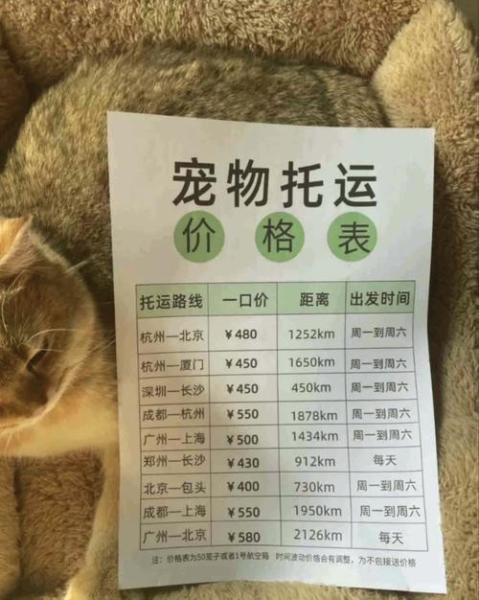 宠物托运
价格表
托运路线 一口价 距离 出发时间
杭州—北京 ¥480 1252km 周一到周六
杭州—厦门 ¥450 1650km 周一到周六
深圳—长沙 ¥450 450km 周一到周六
成都—杭州 ¥550 1878km 周一到周六
广州—上海 ¥500 1434km 周一到周六
郑州—长沙 ¥430 912km 每天
北京—包头 ¥400 730km 周一到周六
成都—上海 ¥550 1950km 周一到周六
广州—北京 ¥580 2126km 每天
注：价格表为50笼子或者1号航空箱 时间波动价格会有调整，为不包接送价格